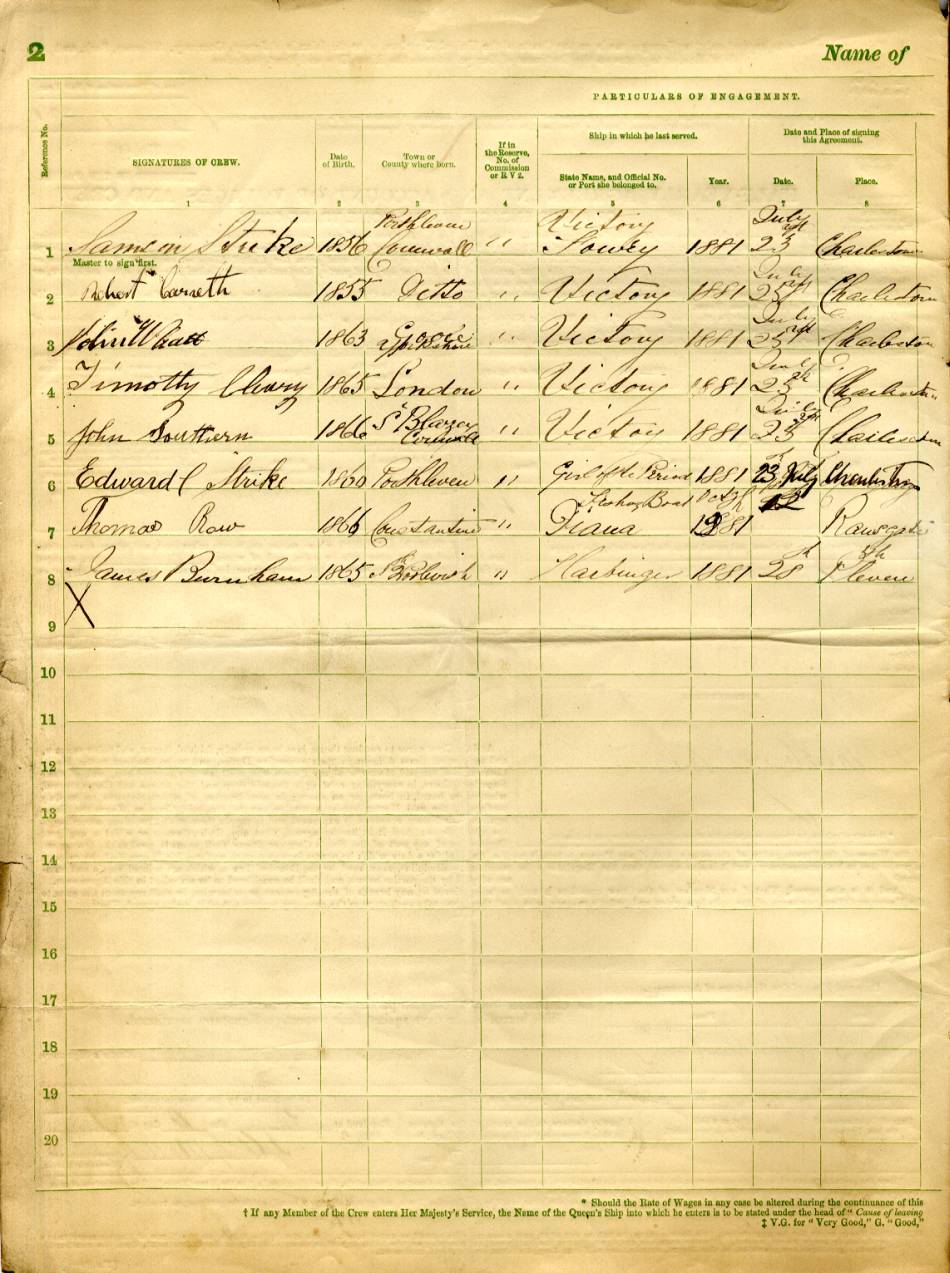 2 Name of
PARTICULARS OF ENGAGEMENT.
Reference No.
SIGNATURES OF CREW.
Date of Birth.
Town or County where born.
If in the Reserve, No. of Commission or R V 2.
Ship in which he last served.
State Name, and Official No. or Port she belonged to.
Year.
Date and Place of signing this Agreement.
Date.
Place.
1 2 3 4 5 6 7 8
Porthleven Victory July
1 Samson Strike 1856 Cornwall " Fowey 1881 23 Charlestown
Master to sign first.
July
2 Robert Carneth 1855 Ditto " Victory 1881 23 Charlestown
July
3 John 1863 Victory 1881 23 Charlestown
4 Timothy Cleary 1865 London " Victory 1881 23 Charlestown
July
5 John Southern 1866 St Blazey Cornwall " Victory 1881 23 Charlestown
6 Edward C Strike 1860 Porthleven " Girl of the Period 1881 23 July Charlestown
Fishing Boat Oct
7 Thomas Row 1866 Constantine " Diana 1881 12 Ramsgate
8 James Burnham 1865 " Harbinger 1881 28th
9 X
10
11
12
13
14
15
16
17
18
19
20
* Should the Rate of Wages in any case be altered during the continuance of this
† If any Member of the Crew enters Her Majesty's Service, the Name of the Queen's Ship into which he enters is to be stated under the head of "Cause of leaving
‡ V.G. for "Very Good," G. "Good,"